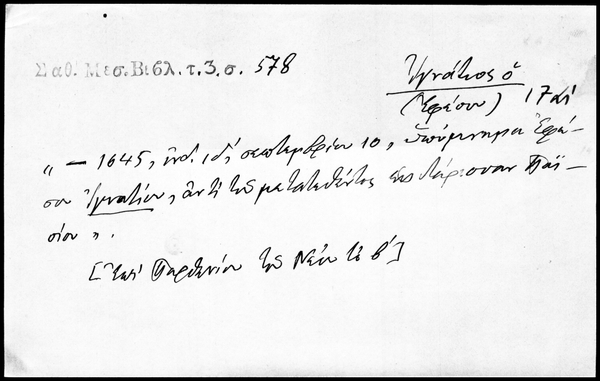 Σαθ. Μεσ. Βιβλ. τ. 3. σ. 578
Ἰγνάτιος ὁ
(Ἐφέσου) 17 αἰ
" — 1645, ἰνδ. ιδ', σεπτεμβρίου 10, ὑπόμνημα Ἐφέ-
σου Ἰγνατίου, ἀντὶ τοῦ μετατεθέντος εἰς Λάρισσαν Παϊ-
σίου ".
[Ἐπὶ Παρθενίου τοῦ Νέου τοῦ β']